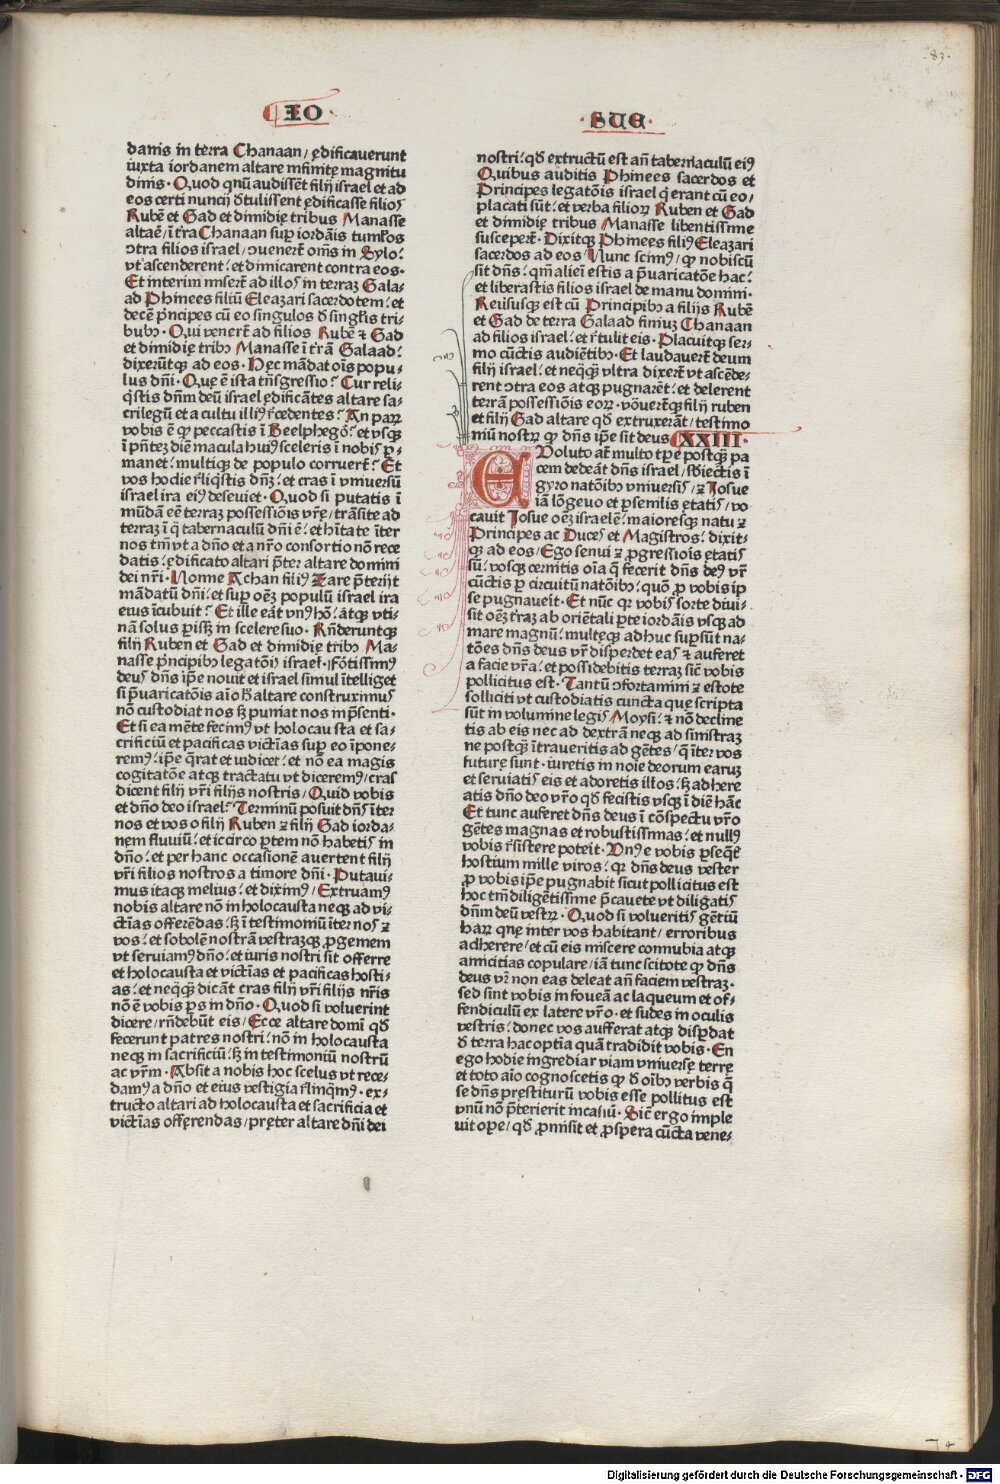 .83.
IO
SUE
danis in terra Chanaan/ ędificauerunt
iuxta iordanem altare infinitę magnitu
dinis. Quod qnū audissēt filij israel et ad
eos certi nuncij d̄tulissent ędificasse filios
Rubē et Gad et dimidię tribus Manasse
altaē/ ī tr̄a Chanaan sup̱ iordāis tumłos
ↄtra filios israel/ ↄuenert̄ om̄s in Sylo:
vt ascenderent: et dimicarent contra eos.
Et interim misert̄ ad illos in terraʒ Gala-
ad Phinees filiū Eleazari sacerdotem: et
decē p̄ncipes cū eo singulos d̄ singłis tri-
bubꝫ. Qui venert̄ ad filios Rubē ⁊ Gad
et dimidię tribꝫ Manasse ī tr̄ā Galaad:
dixerūtqꝫ ad eos. Hęc mādat oīs popu-
lus dn̄i. Quę ē ista tn̄sgressio? Cur reli-
q̇stis dn̄m deū israel ędificātes altare sa-
crilegū et a cultu illiꝰ r̄cedentes? An paꝝ
vobis ē qꝫ peccastis ī Beelphegō: et vsqꝫ
ī pn̄teʒ diē macula huiꝰ sceleris ī nobis p̱-
manet: multiqꝫ de populo corruert̄? Et
vos hodie r̄liq̇stis dn̄ʒ: et cras ī vniuersū
israel ira eiꝰ deseuiet. Quod si putatis ī
mūdā eē terraʒ possessiōis vr̄ę/ trāsite ad
terraʒ ī q̇ tabernaculū dn̄i ē: et hītate īter
nos tm̄ vt a dn̄o et a nr̄o consortio nō rece
datis: ędificato altari p̄ter altare domini
dei nr̄i. Nonne Achan filiꝰ Zare p̄terijt
mādatū dn̄i: et sup̱ oēʒ populū israel ira
eius īcubuit? Et ille eāt vnꝰ hō: ātqꝫ vti-
nā solus p̱issʒ in scelere suo. Rn̄deruntqꝫ
filij Ruben et Gad et dimidię tribꝫ Ma-
nasse p̄ncipibꝫ legatōis israeł. Fōtissimꝰ
deus dn̄s ip̄e nouit et israel simul ītelliget
si p̄uaricatōis aīo h̄ altare construximus
nō custodiat nos sꝫ puniat nos in p̄senti.
Et si ea mēte fecimꝰ vt holocausta et sa-
crificiū et pacificas victīas sup̱ eo īpone-
remꝰ: ip̄e q̄rat et iudicet: et nō ea magis
cogitatōe atqꝫ tractatu vt diceremꝰ/ cras
dicent filij vr̄i filijs nostris/ Quid vobis
et dn̄o deo israel? Terminū posuit dn̄s īter
nos et vos o filij Ruben ⁊ filij Gad iorda-
nem fluuiū: et iccirco p̱tem nō habetis in
dn̄o: et per hanc occasionē auertent filij
vr̄i filios nostros a timore dn̄i. Putaui-
mus itacqꝫ melius: et diximꝰ/ Extruamꝰ
nobis altare nō in holocausta neqꝫ ad vi-
ctīas offerēdas: sꝫ ī testimoniū īter nos ⁊
vos: et sobolē nostrā vestraʒqꝫ ꝓgeniem
vt seruiamꝰ dn̄o: et iuris nostri sit offerre
et holocausta et victīas et pacificas hosti-
as: et neqꝫ̄ dicāt cras filij vr̄i filijs nr̄is
nō ē vobis p̱s in dn̄o. Quod si voluerint
dicere/ rn̄debūt eis/ Ecce altare domī qd̄
fecerunt patres nostri: nō in holocausta
neqꝫ in sacrificiū: sꝫ in testimoniū nostrū
ac vr̄m. Absit a nobis hoc scelus vt rece-
damꝰ a dn̄o et eius vestigia r̄linq̄mꝰ. ex-
tructo altari ad holocausta et sacrificia et
victīas offęrendas/ pręter altare dn̄i dei
nostri: qd̄ extructū est an̄ tabernaculū eiꝰ
Quibus auditis Phinees sacerdos et
Principes legatōis israel q̇ erant cū eo/
placati sūt: et verba filioꝝ Ruben et Gad
et dimidię tribus Manasse libentissime
susceper̄t. Dixitqꝫ Phinees filiꝰ Eleazari
sacerdos ad eos/ Nunc scimꝰ/ qꝫ nobiscū
sit dn̄s: qm̄ alieni estis a p̄uaricatōe hac:
et liberastis filios israel de manu domini.
Reuisusqꝫ est cū Principibꝫ a filijs Rubē
et Gad de terra Galaad finiuʒ Chanaan
ad filios israel: et r̄tulit eis. Placuitqꝫ ser-
mo cūctis audiētibꝫ. Et laudauert̄ deum
filij israel: et neqꝫ̄ vltra dixert̄ vt ascēde-
rent ↄtra eos atqꝫ pugnarēt: et delerent
terrā possessiōis eoꝝ. vōuert̄qꝫ filij ruben
et filij Gad altare qd̄ extruxerāt/ testimo
niū nostꝝ qꝫ dn̄s ip̄e sit deus XXIII.
EVoluto at̄ multo tp̄e postqꝫ pa
cem dedeāt dn̄s israel/ sb̄iectis ī
gyro natōibꝫ vniuersis/ ⁊ Josue
iā lōgeuo et p̱senilis ętatis/ vo
cauit Josue oēʒ israelē: maioresqꝫ natu ⁊
Principes ac Duces et Magistros: dixit-
qꝫ ad eos/ Ego senui ⁊ ꝓgressiōis etatis
sū: vosqꝫ cernitis oīa q̄ fecerit dn̄s deꝰ vr̄
cūctis p̱ circuitū natōibꝫ: quō ꝓ vobis ip̄
se pugnaueīt. Et nūc qꝛ vobis sorte diui-
sit oēʒ tr̄aʒ ab oriētali p̱te iordāis vsqꝫ ad
mare magnū: multęqꝫ adhuc sup̱sūt na-
tōes dn̄s deus vr̄ disperdet eas ⁊ auferet
a facie vr̄a: et possidebitis terraʒ sic̄ vobis
pollicitus est. Tantū ↄfortamini ⁊ estote
solliciti vt custodiatis cuncta que scripta
sūt in volumine legis Moysi: ⁊ nō decline
tis ab eis nec ad dextrā neqꝫ ad sinistraʒ
ne postqꝫ ītraueritis ad gētes/ q̄ īter vos
futurę sunt. iuretis in noīe deorum earuʒ
et seruiatis eis et adoretis illos: sꝫ adhere
atis dn̄o deo vr̄o qd̄ fecistis vsqꝫ ī diē hāc
Et tunc auferet dn̄s deus ī cōspectu vr̄o
gētes magnas et robustissimas: et nullꝰ
vobis r̄sistere poteīt. Vnꝰ e vobis p̱seq̄t̄
hostium mille viros: qꝛ dn̄s deus vester
ꝓ vobis ip̄e pugnabit sicut pollicitus est
hoc tm̄ diligētissime p̄cauete vt diligatis
dn̄m deū vestꝝ. Quod si volueritis gētiū
haꝝ quę inter vos habitant/ erroribus
adherere/ et cū eis miscere connubia atqꝫ
amicitias copulare/ iā tunc scitote qꝫ dn̄s
deus vr̄ non eas deleat an̄ faciem vestraʒ.
sed sint vobis in foueā ac laqueum et of-
fendiculū ex latere vr̄o. et sudes in oculis
vestris: donec vos aufferat atqꝫ disp̱dat
d̄ terra hac optīa quā tradidit vobis. En
ego hodie ingrediar viam vniuersę terrę
et toto aīo cognoscetis qꝫ d̄ oībꝫ verbis q̄
se dn̄s pręstiturū vobis esse pollitus est
vnū nō p̄terierit incasiū. Sic̄ ergo imple
uit ope/ qd̄ ꝓmisit et ꝓspera cūcta vene-
Digitalisierung gefördert durch die Deutsche Forschungsgemeinschaft - DFG